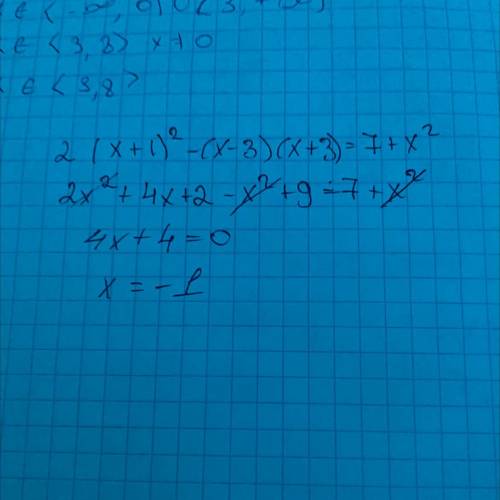 ∈ <3, 8> x≠0
∈ <3, 8>
2 (x+1)² -(x-3)(x+3)=7+x²
2x² + 4x+2 -x² +9=7 +x²
4x+4=0
x = -1